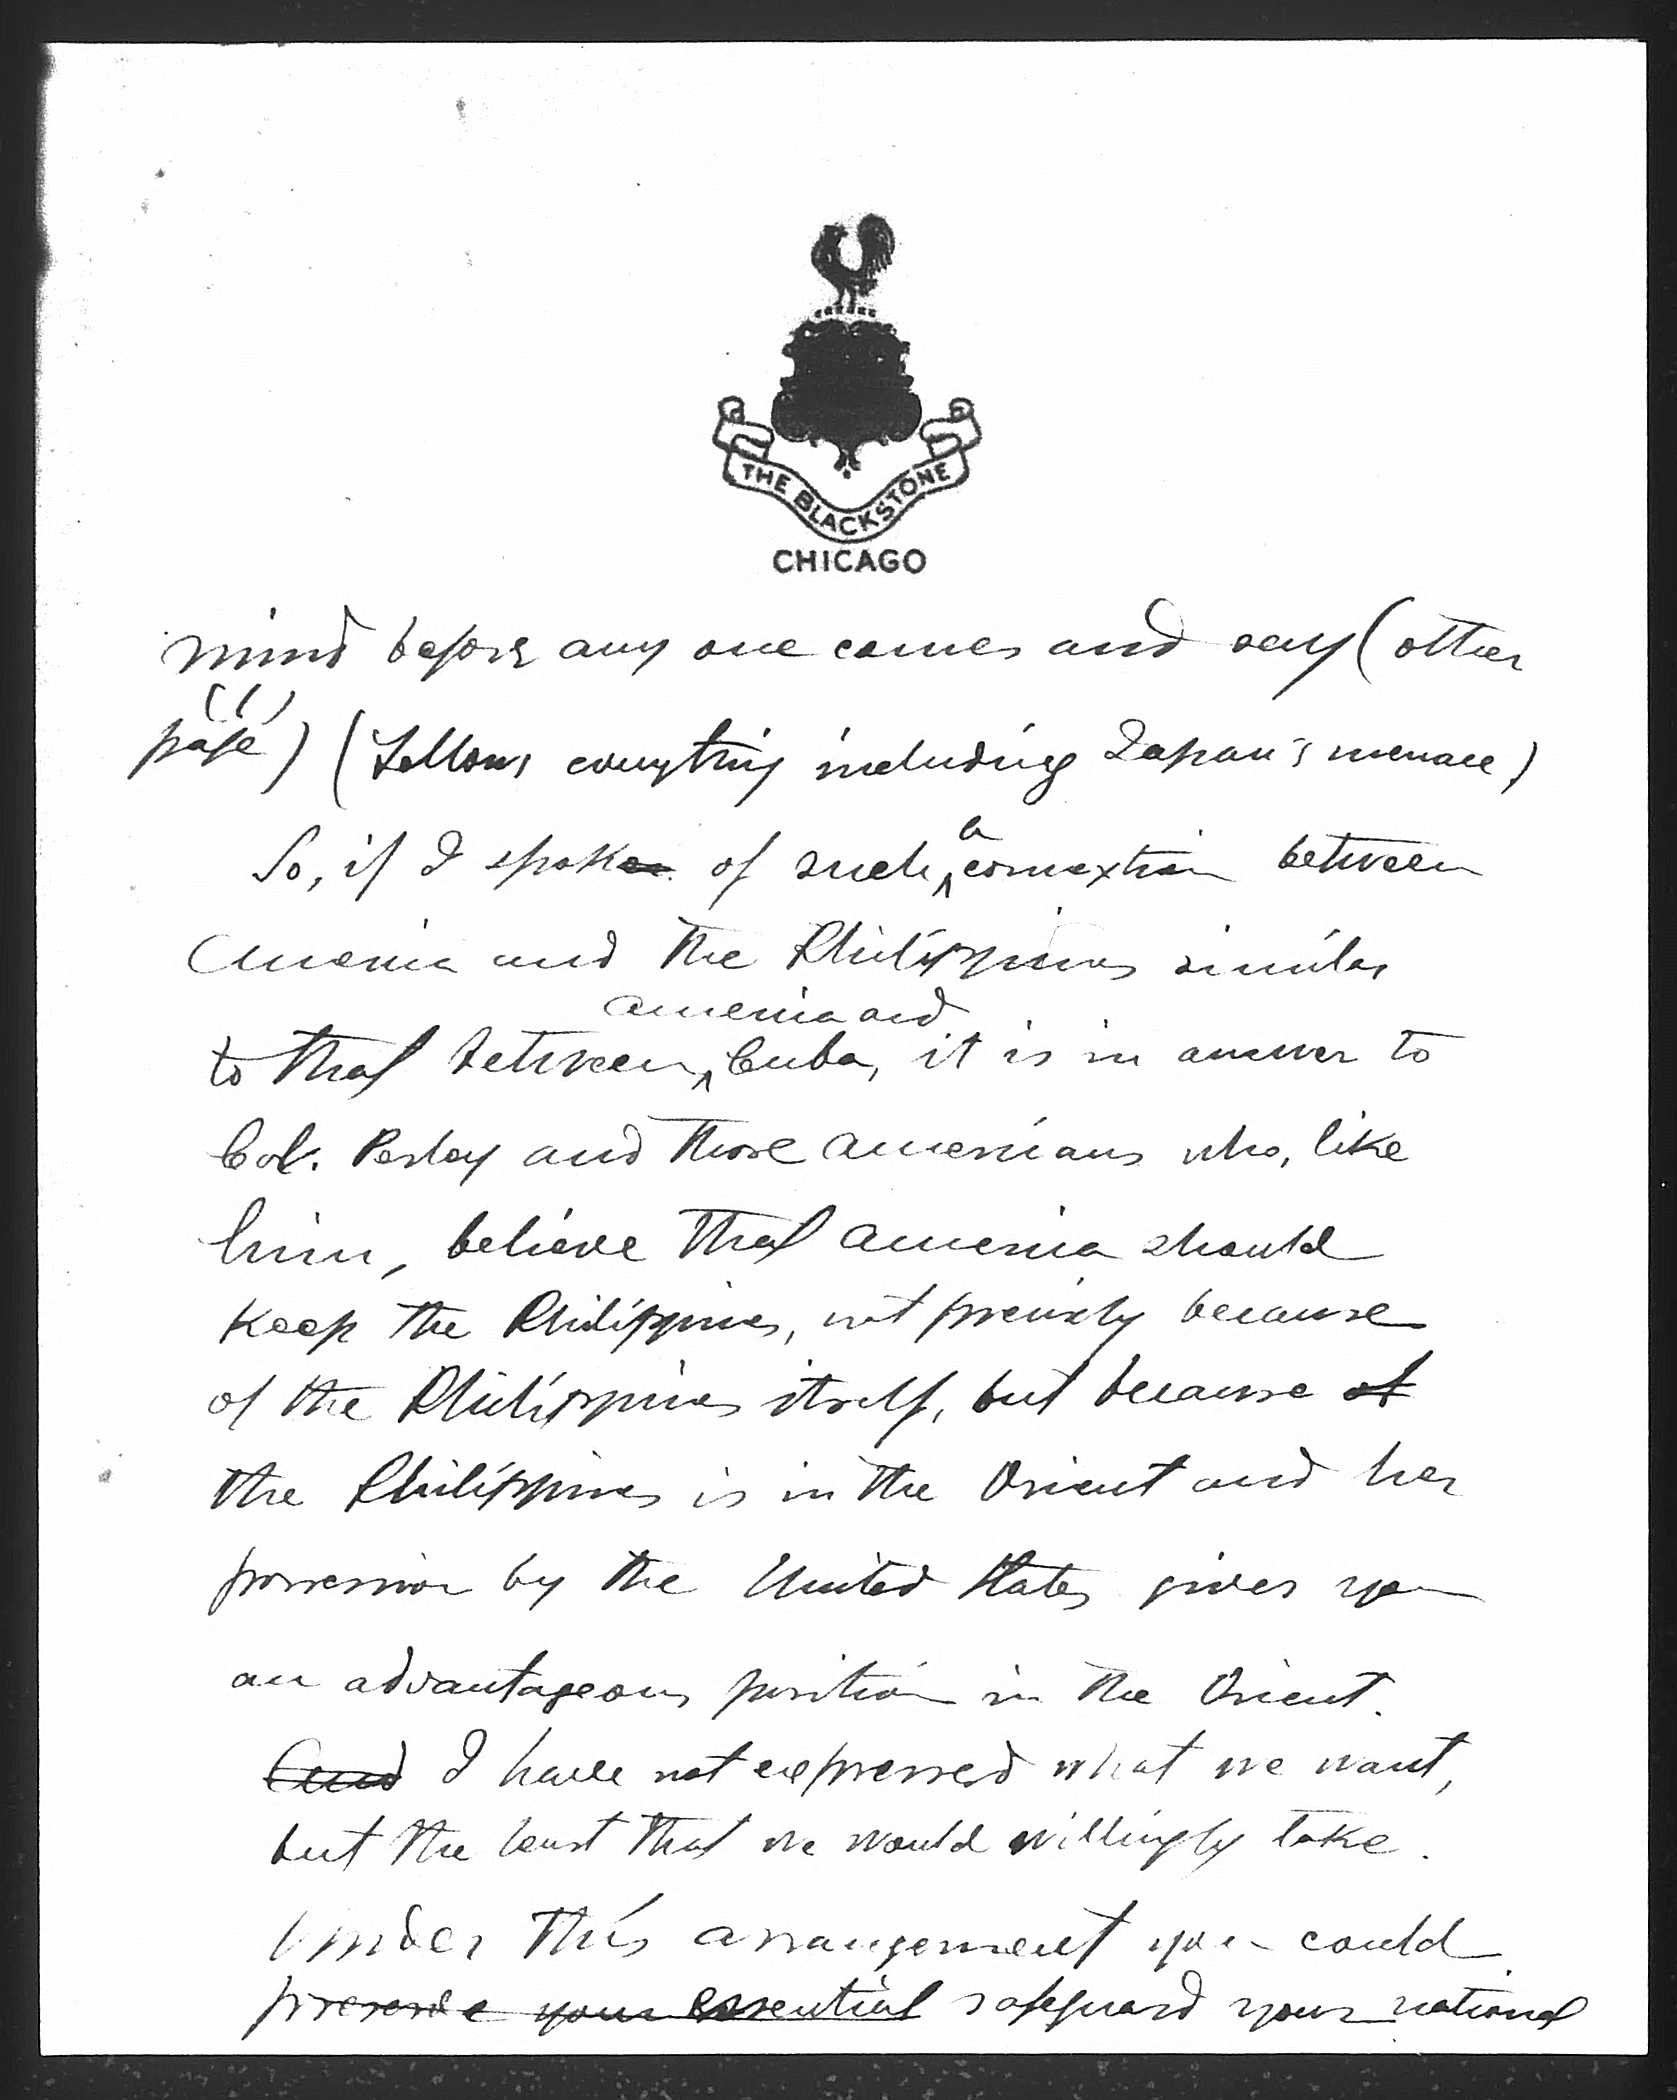 THE BLACKSTONE
CHICAGO
mind before any one comes and say (other
(1)
page) (Follows everything including Japan's menace)
So, if I spoke of such a connextion between
America and the Philippines similar
america and
to that between Cuba, it is in answer to
Col. and those americans who, like
him, believe that america should
Keep the Philippines, not precisely because
of the Philippines itself, but because of
the Philippines is in the Orient and her
possession by the United States gives you
an advantageous position in the Orient.
And I have not expressed what we want,
but the least that we would willingly take.
Under this arrangement you could
preserve your essential safeguard your national